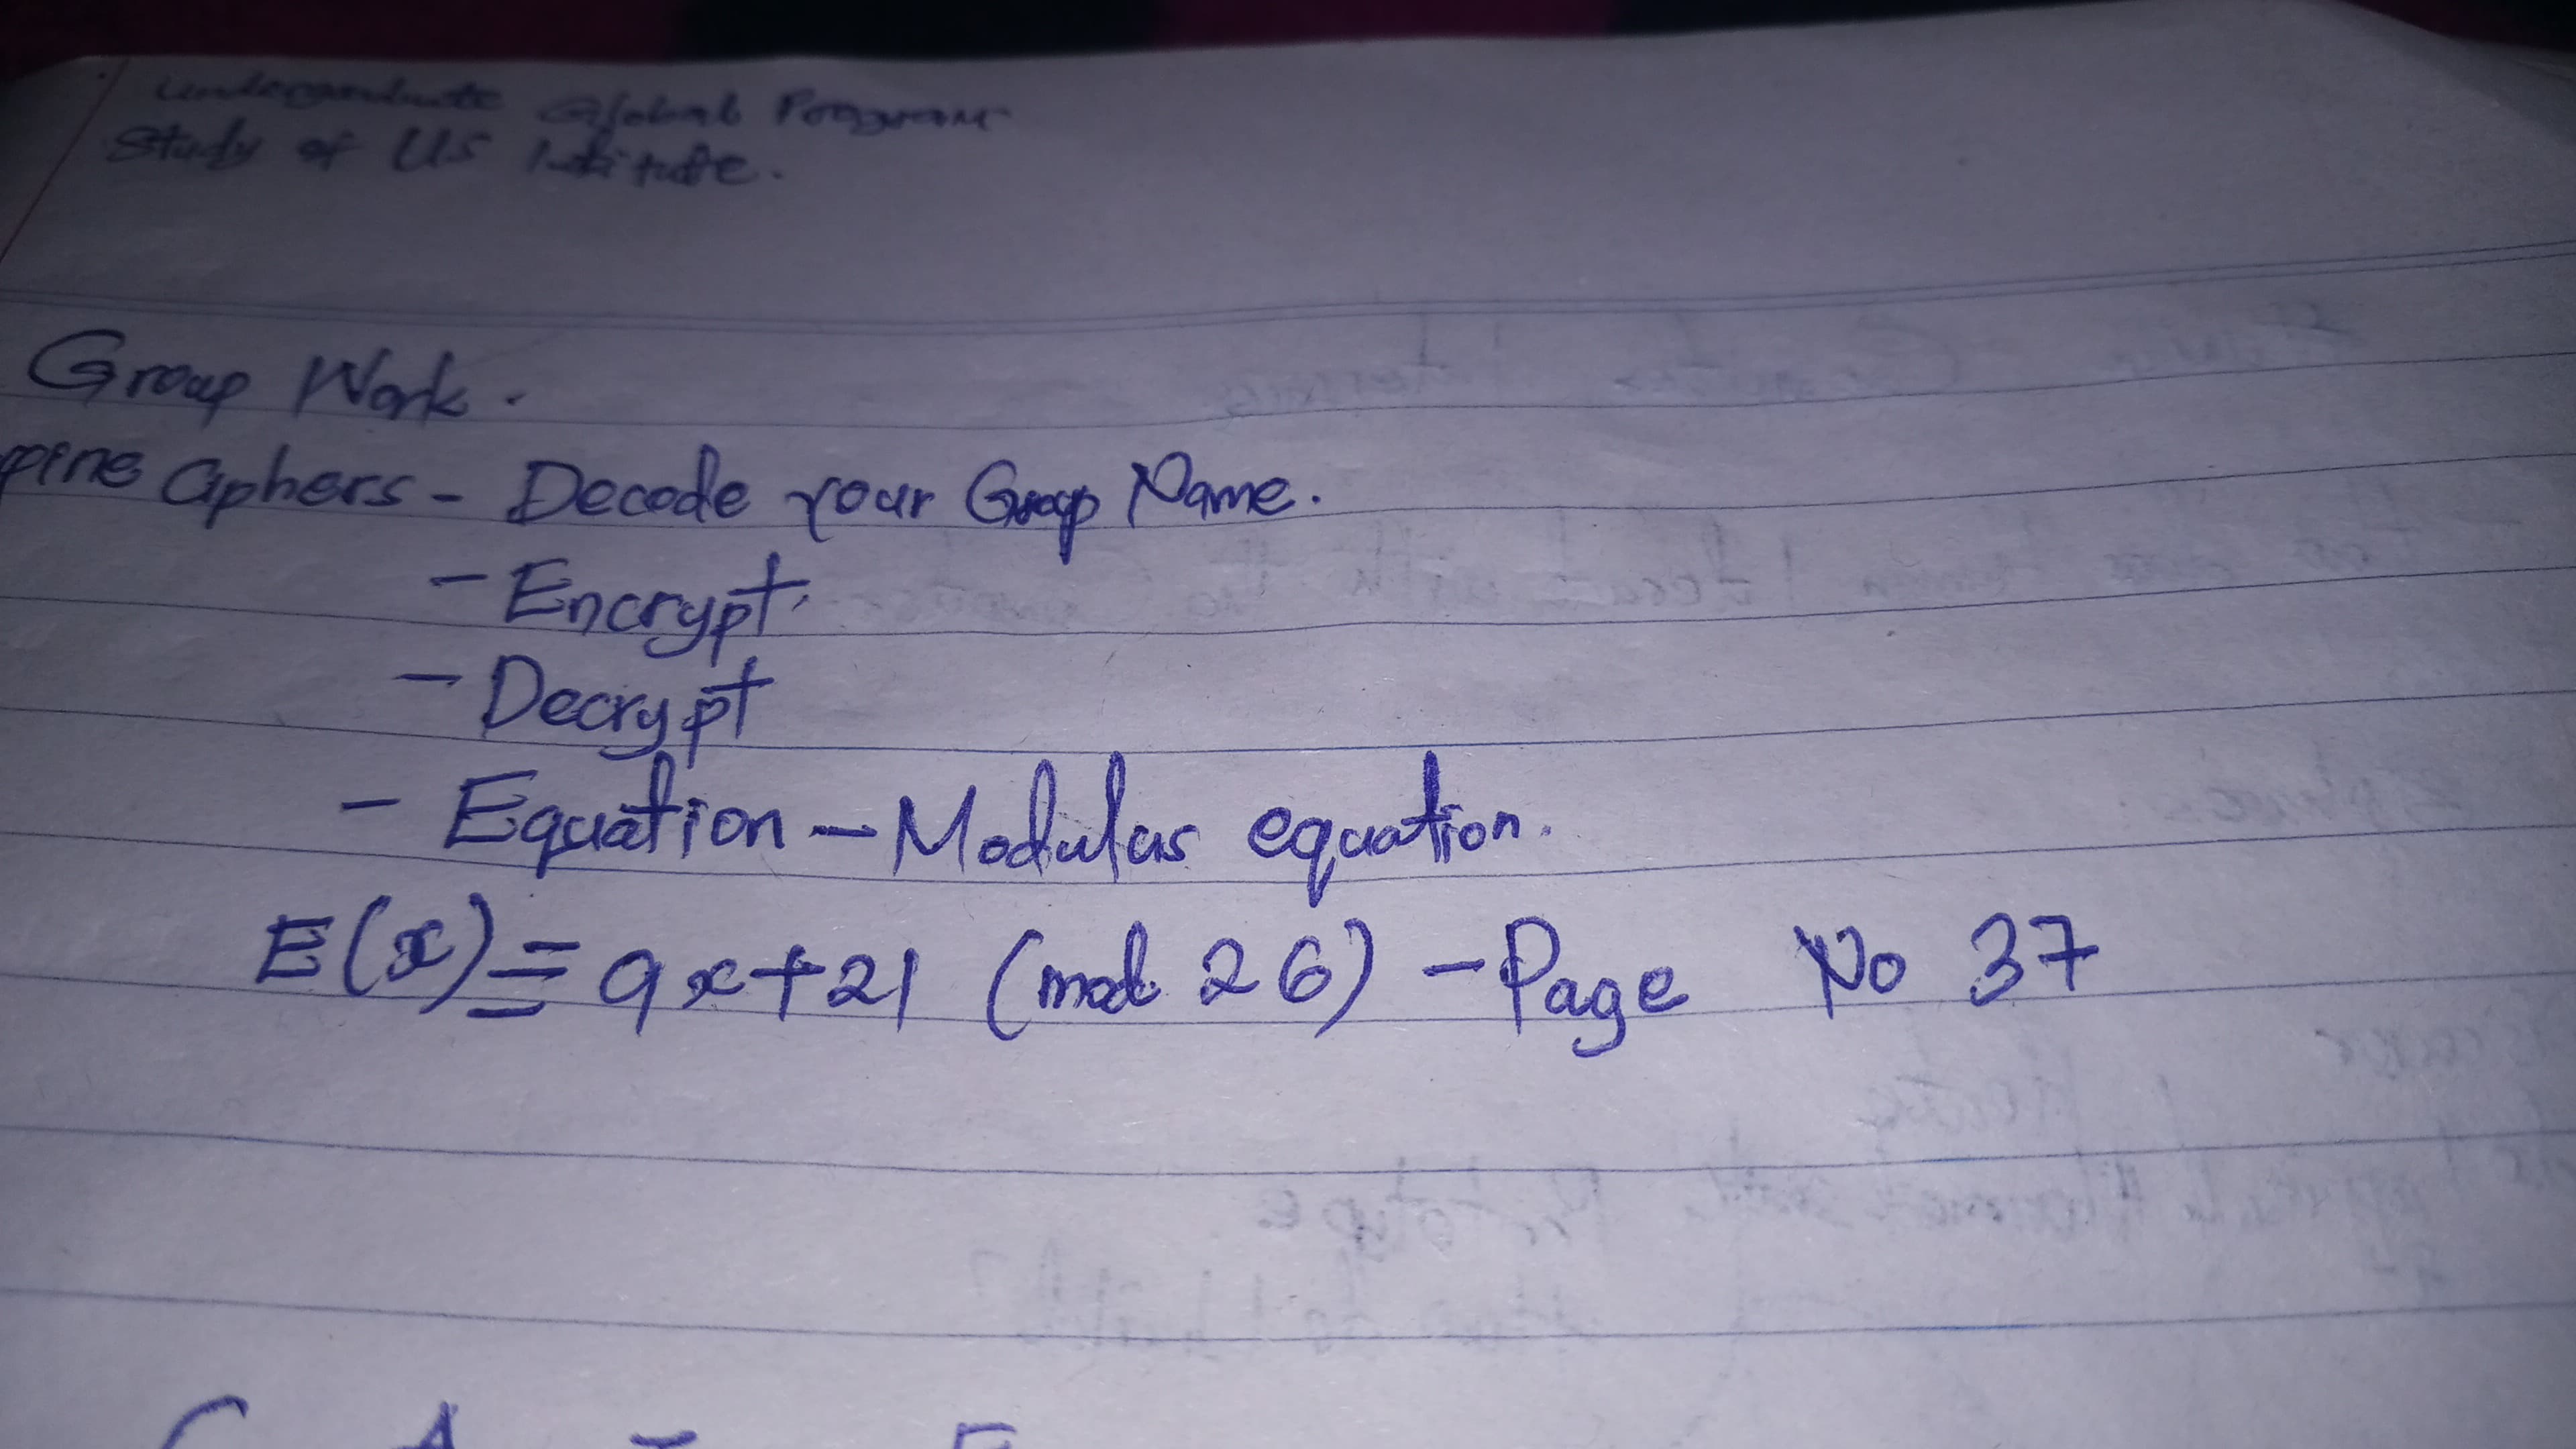 undergraduate Global Program
Study of US Intitute.
Group Work.
pine Ciphers - Decode your Group Name.
- Encrypt.
- Decrypt
- Equation - Modulus equation.
E(x) ≡ 9x+21 (mod 26) - Page No 37